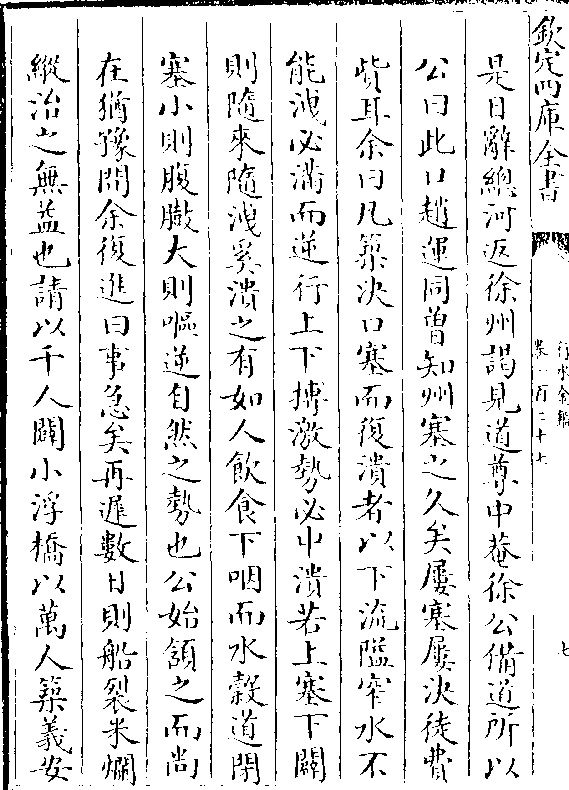 欽定四庫全書
行水金鑑
卷一百二十七
七
是日辭總河返徐州謁見道尊中菴徐公備道所以
公曰此口趙運同曾知州塞之久矣屢塞屢決徒費
貲耳余曰凡築決口塞而復潰者以下流隘窄水不
能洩必滿而逆行上下搏激勢必中潰若上塞下闢
則隨來隨洩奚潰之有如人飲食下咽而水穀道閉
塞小則腹臌大則嘔逆自然之勢也公始頷之而尚
在猶豫間余復進曰事急矣再遲數日則船裂米爛
縱治之無益也請以千人闢小浮橋以萬人築義安